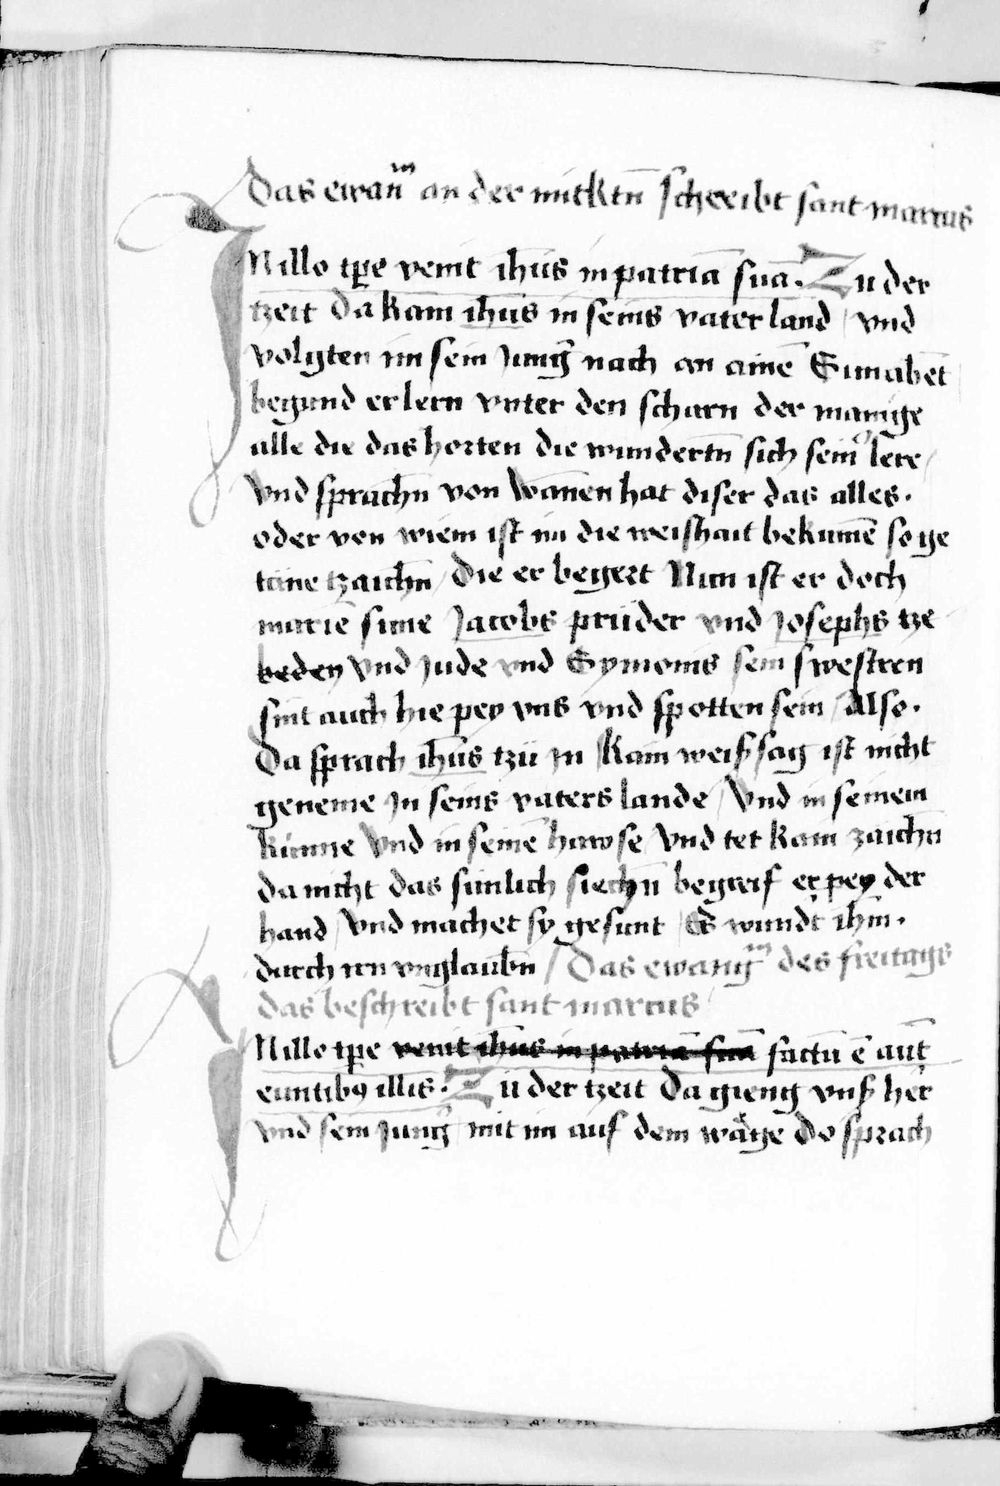 Das ewan̄m an der mitktn̄ schreibt sant marcus
IN illo tp̄e venit ih̄us in patriā suā. Zu der
tzeit da kam ih̄us in seins vater land / vnd
volgten im sein Junḡ nach an ainē Sunabēt
begund er lern vnter den scharn der manige
alle die das horten die wundertn̄ sich sein̄ lere /
Vnd sprachn̄ von wannen hat diser das alles.
oder von wiem ist im die weishait bekumē so ge
tane tzaichn̄ / die er begert Nun ist er doch
marie sune Jacobs prüder vnd Josephs tze
beden vnd Jude vnd Symonis sein swestren
sint auch hie pey vns vnd spotten sein / Also.
Da sprach ih̄us tzü in kain weiſsag ist nicht
geneme Jn seins vaters lande / Vnd in seinem
künne Vnd in seinē hawse Vnd tet kain zaichn̄
da nicht das sunlich siechn̄ begreif er pey der
hand / Vnd machet sy gesunt / Es wundt̄ ih̄m.
durch irn vnglaubn̄ / Das ewanḡm des freitags
das beschreibt sant marcus
IN illo tp̄e venit ih̄us in patriā suā factū ē aut̄
euntibꝯ illis. Zü der tzeit da gieng vnſ her̄
vnd sein Junḡ mit im auf dem wäge do sprach